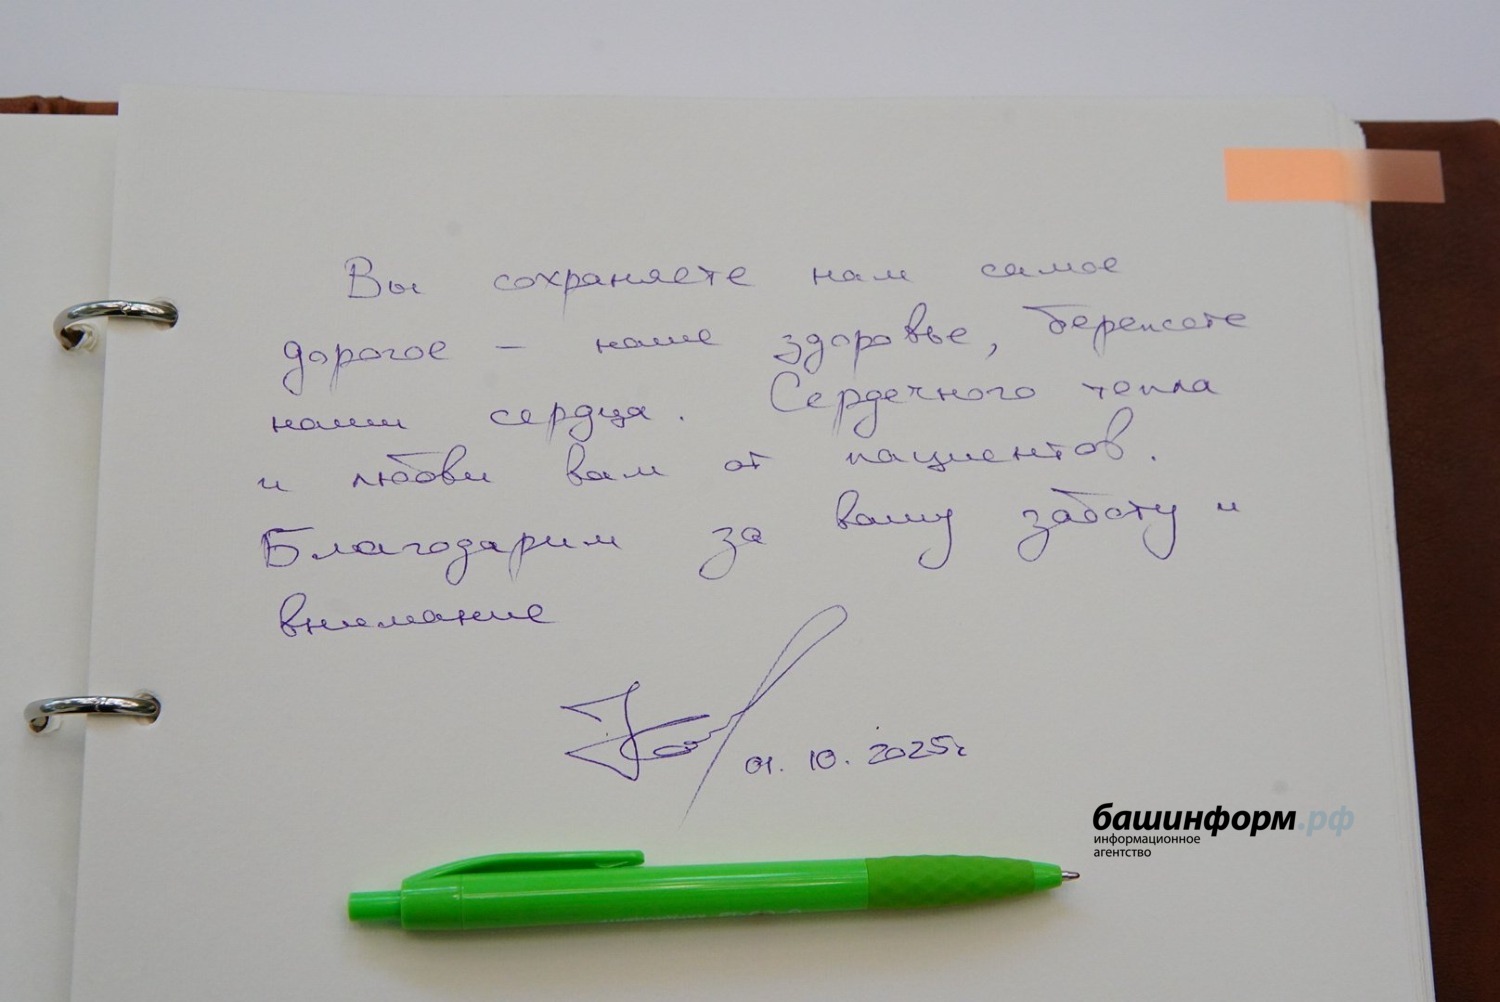 Вы сохраняете нам самое
дорогое – наше здоровье, бережете
наши сердца. Сердечного тепла
и любви вам от пациентов.
Благодарим за вашу заботу и
внимание
01.10.2025г
башинформ.рф
информационное
агентство